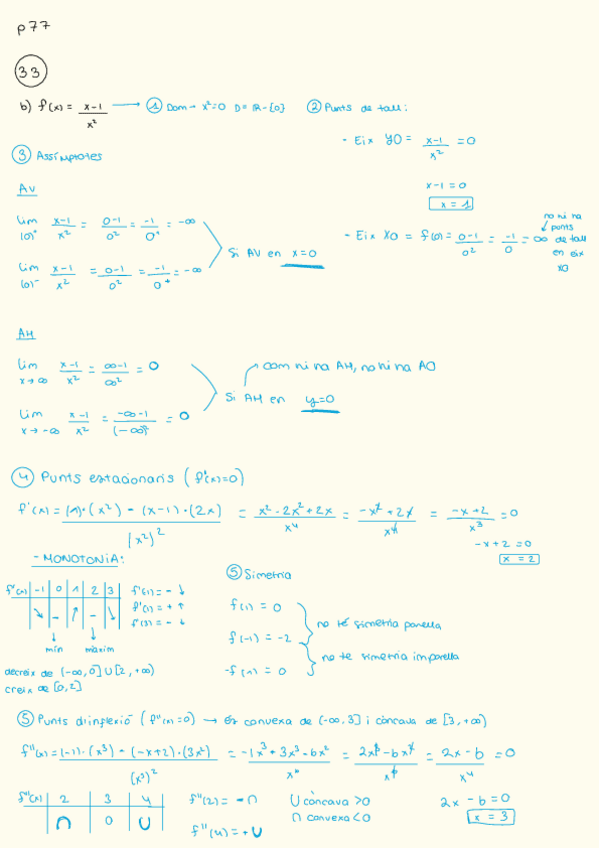 p 77
33
b) f(x) = x-1 / x² → ① Dom → x²=0 D = R-{0} ② Punts de tall:
- Eix Y0 = x-1 / x² = 0
x-1 = 0
x = 1
- Eix X0 = f(0) = 0-1 / 0² = -1 / 0 = ∞ no hi ha punts de tall en eix x0
③ Assímptotes
AV
lim |0|⁺ x-1 / x² = 0-1 / 0² = -1 / 0⁺ = -∞
lim |0|⁻ x-1 / x² = 0-1 / 0² = -1 / 0⁺ = -∞
Si AV en x=0
AH
lim x→∞ x-1 / x² = ∞-1 / ∞² = 0
lim x→-∞ x-1 / x² = -∞-1 / (-∞)² = 0
Si AH en y=0
com hi ha AH, no hi ha AO
④ Punts estacionaris (f'(x)=0)
f'(x) = (1)·(x²) - (x-1)·(2x) / (x²)² = x² - 2x² + 2x / x⁴ = -x² + 2x / x⁴ = -x+2 / x³ = 0
-x+2 = 0
x = 2
- MONOTONIA:
f'(x) -1 0 1 2 3
↘ - ↗ - ↘
mín màxim
f'(-1) = - ↓
f'(1) = + ↑
f'(3) = - ↓
decreix de (-∞,0] U [2,+∞)
creix de [0,2]
⑤ Simetria
f(1) = 0
f(-1) = -2
-f(1) = 0
no té simetria parella
no te simetria imparella
⑤ Punts d'inflexió (f''(x)=0) → és convexa de (-∞,3] i còncava de [3,+∞)
f''(x) = (-1)·(x³) - (-x+2)·(3x²) / (x³)² = -1x³ + 3x³ - 6x² / x⁶ = 2x³ - 6x² / x⁶ = 2x - 6 / x⁴ = 0
f''(x) 2 3 4
∩ 0 U
f''(2) = - ∩
f''(4) = + U
U còncava > 0
∩ convexa < 0
2x - 6 = 0
x = 3